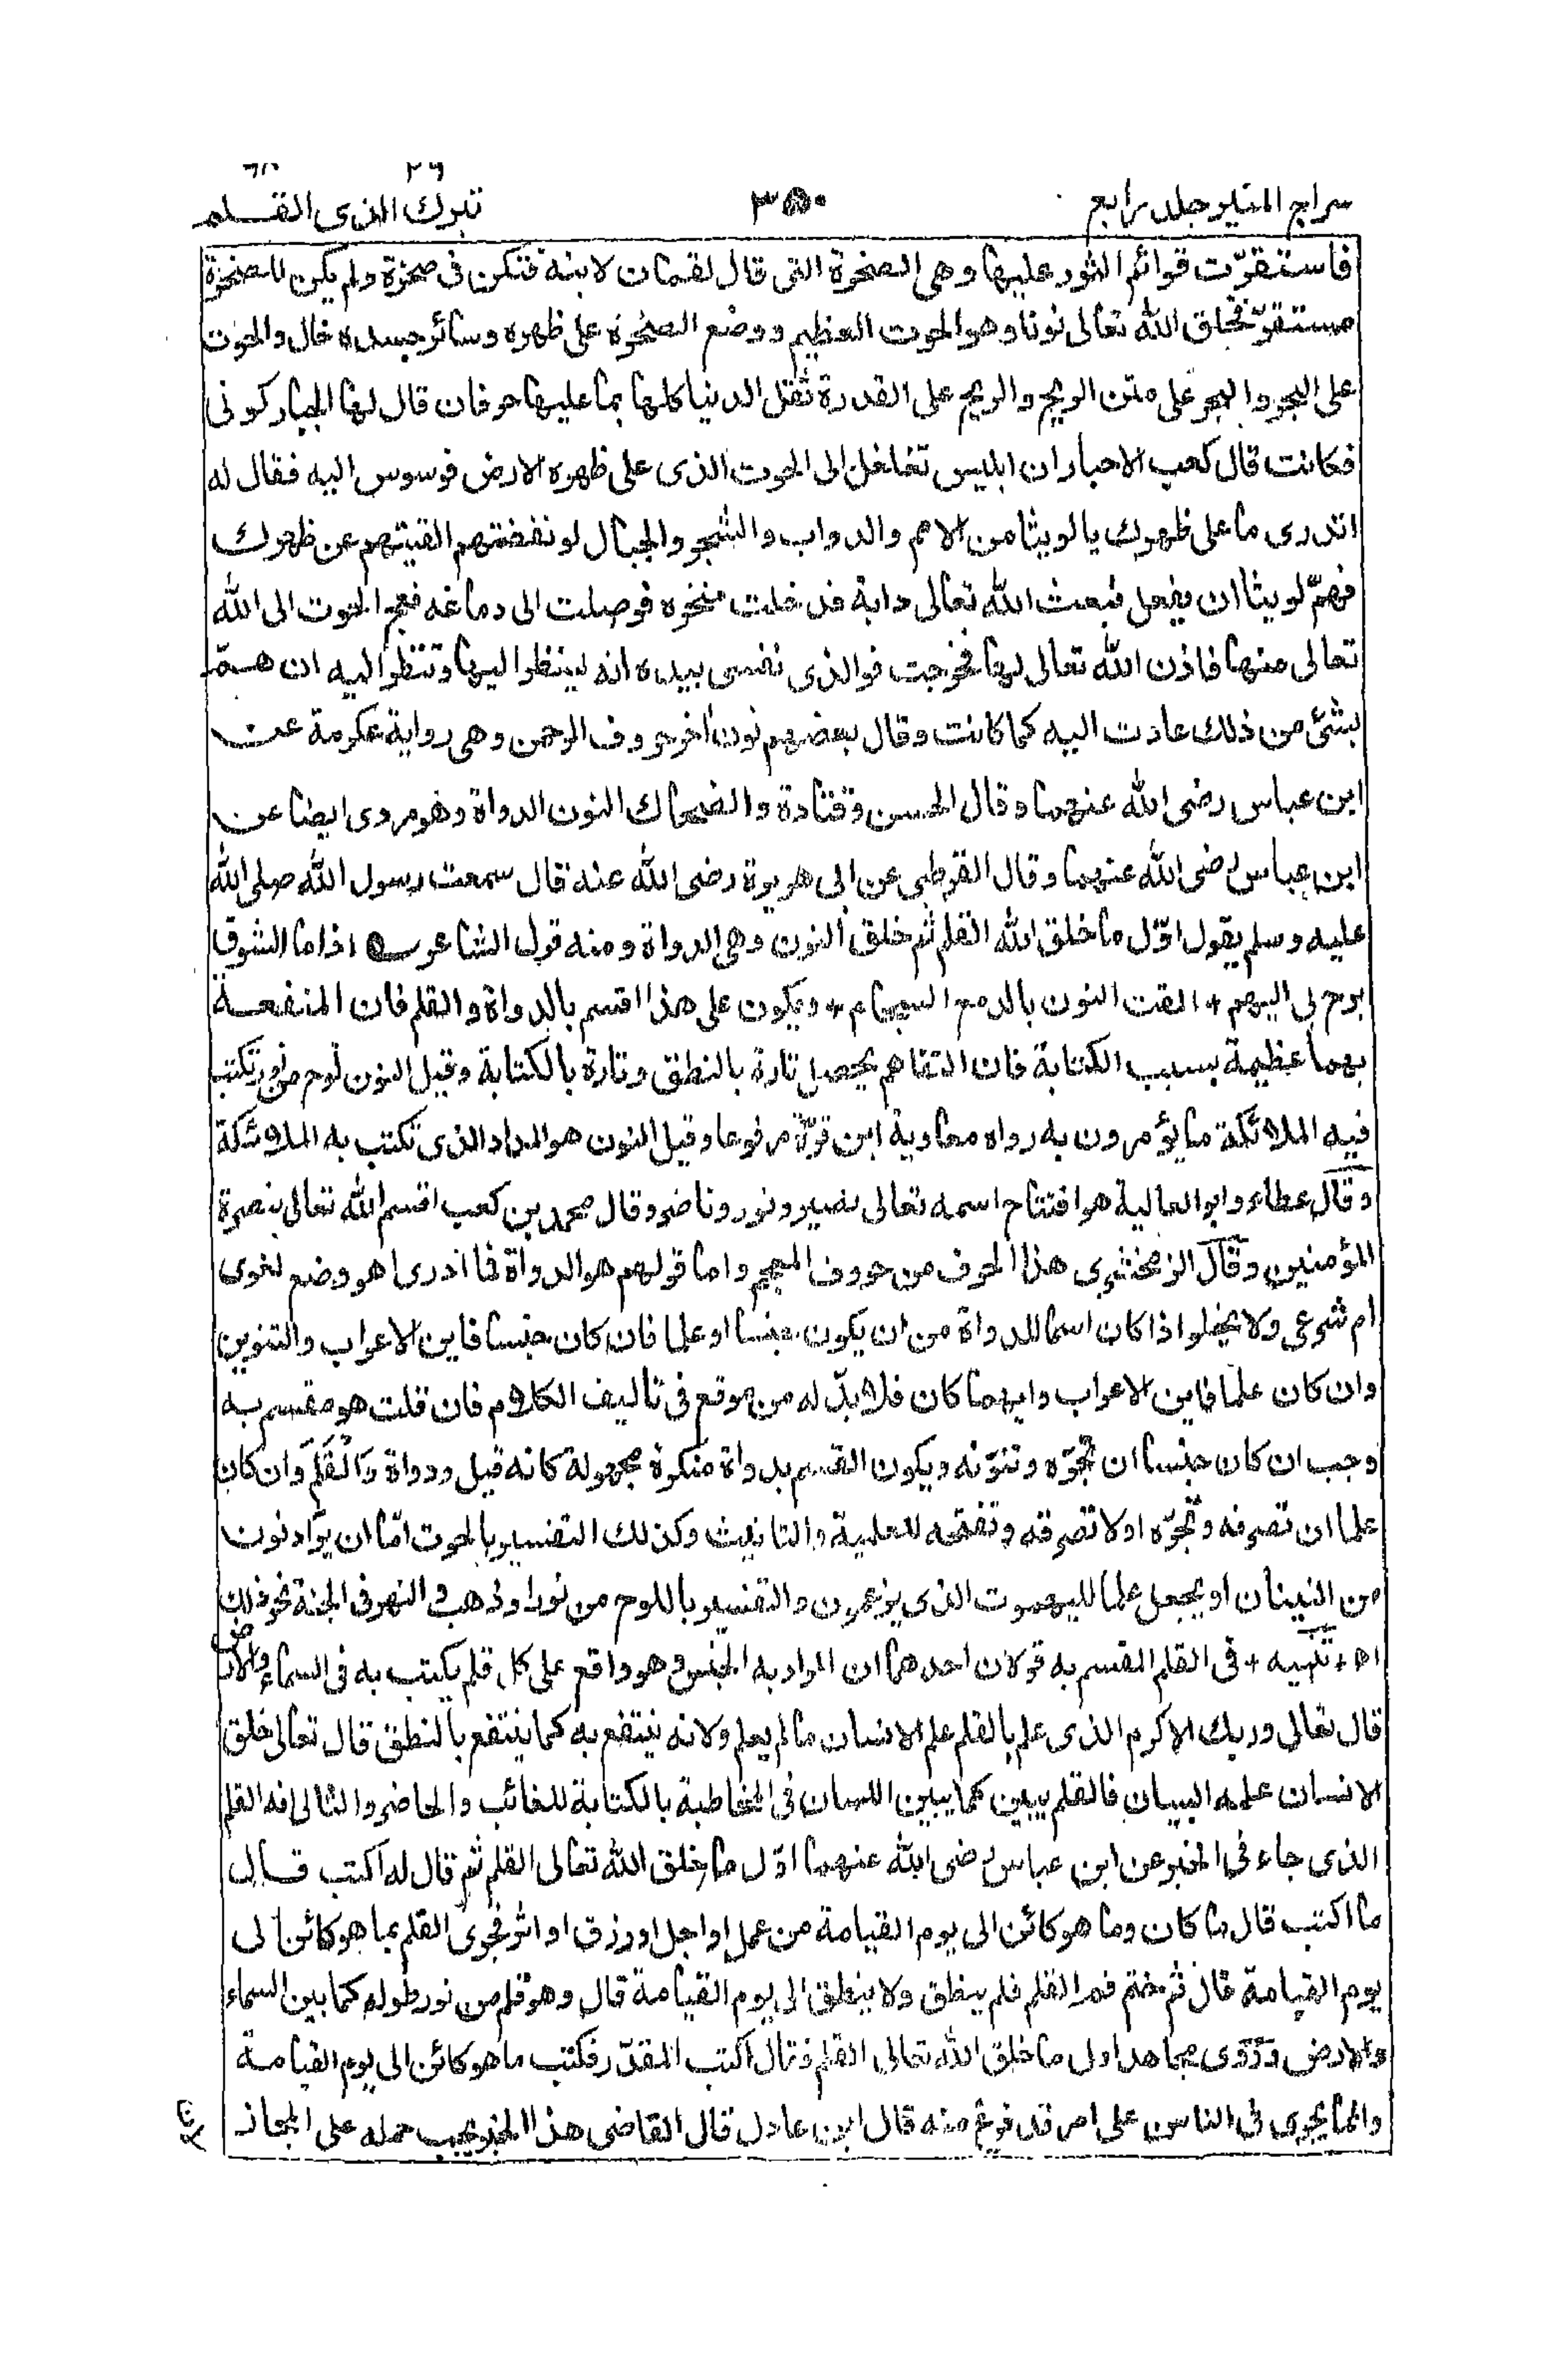 سراج المنير جلد رابع ٣٥٠ تبرك الذى القلم
فاستقرّت قوائم الثور عليها وهى الصخرة التى قال لقمان لابنه فتكن فى صخرة ولم يكن للصخرة
مستقرّ فخلق الله تعالى نونا وهو الحوت العظيم ووضع الصخرة على ظهره وسائر جسده خال والحوت
على البحر والبحر على متن الريح والريح على القدرة ثقل الدنيا كلها بما عليها حرفان قال لها الجبار كونى
فكانت قال كعب الاحبار ان ابليس تغلغل الى الحوت الذى على ظهره الارض فوسوس اليه فقال له
اتدرى ما على ظهرك يا لويثا من الامم والدواب والشجر والجبال لو نفضتهم القيتهم عن ظهرك
فهمّ لويثا ان يفعل فبعث الله تعالى دابة فدخلت منخره فوصلت الى دماغه فعج الحوت الى الله
تعالى منها فاذن الله تعالى لها فخرجت فوالذى نفسى بيده انه لينظر اليها وتنظر اليه ان همّ
بشئ من ذلك عادت اليه كما كانت وقال بعضهم نون اخر حروف الرحمن وهى رواية عكرمة عن
ابن عباس رضى الله عنهما وقال الحسن وقتادة والضحاك النون الدواة وهو مروى ايضا عن
ابن عباس رضى الله عنهما وقال القرطبى عن ابى هريرة رضى الله عنه قال سمعت رسول الله صلى الله
عليه وسلم يقول اوّل ما خلق الله القلم ثم خلق النون وهى الدواة ومنه قول الشاعر اذا ما الشوق
برح بى اليهم + القت النون بالدمع السجام + ويكون على هذا اقسم بالدواة والقلم فان المنفعة
بهما عظيمة بسبب الكتابة فان التفاهم يحصل تارة بالنطق وتارة بالكتابة وقيل النون لوح من نور تكتب
فيه الملائكة ما يؤمرون به رواه معاوية ابن قرّة مرفوعا وقيل النون هو المداد الذى تكتب به الملائكة
وقال عطاء وابو العالية هو افتتاح اسمه تعالى نصير ونور وناصر وقال محمد بن كعب اقسم الله تعالى بنصرة
المؤمنين وقال الزمخشرى هذا الحرف من حروف المعجم واما قولهم هو الدواة فما ادرى اهو وضع لغوى
ام شرعى ولا يخلو اذا كان اسما للدواة من ان يكون جنسا او علما فان كان جنسا فاين الاعراب والتنوين
وان كان علما فاين الاعراب وايهما كان فلا بدّ له من موقع فى تاليف الكلام فان قلت هو مقسم به
وجب ان كان جنسا ان تجرّه وتنوّنه ويكون القسم بدواة منكرة مجهولة كانه قيل ودواة وَالْقَلَمِ وان كان
علما ان تصرفه وتجرّه او لا تصرفه وتفتحه للعلمية والتانيث وكذلك التفسير بالحوت امّا ان يراد نون
من النينان او يجعل علما للبهموت الذى يزعمون والتفسير باللوح من نور او ذهب والنهر فى الجنة نحو ذلك
اه + تنبيه + فى القلم المقسم به قولان احدهما ان المراد به الجنس وهو واقع على كل قلم يكتب به فى السماء والارض
قال تعالى وربك الاكرم الذى علم بالقلم علم الانسان ما لم يعلم ولانه ينتفع به كما ينتفع بالنطق قال تعالى خلق
الانسان علمه البيان فالقلم يبين كما يبين اللسان فى المخاطبة بالكتابة للغائب والحاضر والثانى انه القلم
الذى جاء فى الخبر عن ابن عباس رضى الله عنهما اوّل ما خلق الله تعالى القلم ثم قال له اكتب قال
ما اكتب قال ما كان وما هو كائن الى يوم القيامة من عمل او اجل او رزق او اثر فجرى القلم بما هو كائن الى
يوم القيامة قال ثم ختم فم القلم فلم ينطق ولا ينطق الى يوم القيامة قال وهو قلم من نور طوله كما بين السماء
والارض وروى مجاهد اول ما خلق الله تعالى القلم فقال اكتب المقدّر فكتب ما هو كائن الى يوم القيامة
وانما يجرى فى الناس على امر قد فرغ منه قال ابن عادل قال القاضى هذا الخبر يجب حمله على المجاز